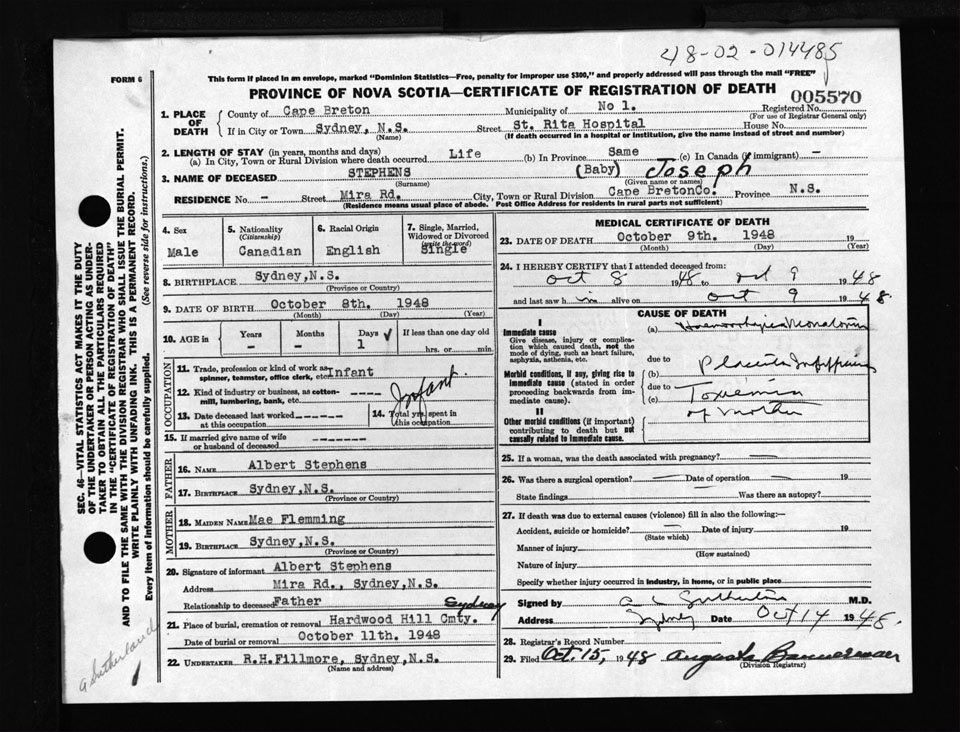 48-02-014485
FORM 6
This form if placed in an envelope, marked "Dominion Statistics—Free, penalty for improper use $300," and properly addressed will pass through the mail "FREE"
PROVINCE OF NOVA SCOTIA—CERTIFICATE OF REGISTRATION OF DEATH
005570
1. PLACE OF DEATH
County of Cape Breton Municipality of No 1. Registered No.
(For use of Registrar General only)
If in City or Town Sydney, N.S. Street St. Rita Hospital House No.
(Name) (If death occurred in a hospital or institution, give the name instead of street and number)
2. LENGTH OF STAY (in years, months and days)
(a) In City, Town or Rural Division where death occurred Life (b) In Province Same (c) In Canada (if immigrant) —
3. NAME OF DECEASED STEPHENS (Baby) Joseph
(Surname) (Given name or names)
RESIDENCE No. - Street Mira Rd. City, Town or Rural Division Cape BretonCo. Province N.S.
(Residence means usual place of abode. Post Office Address for residents in rural parts not sufficient)
4. Sex
Male
5. Nationality
(Citizenship)
Canadian
6. Racial Origin
English
7. Single, Married, Widowed or Divorced
(write the word)
Single
8. BIRTHPLACE Sydney,N.S.
(Province or Country)
9. DATE OF BIRTH October 8th. 1948
(Month) (Day) (Year)
10. AGE in Years Months Days ✓ If less than one day old
- - 1 hrs. or min.
OCCUPATION
11. Trade, profession or kind of work as spinner, teamster, office clerk, etc. Infant
12. Kind of industry or business, as cotton-mill, lumbering, bank, etc. ----
Infant.
13. Date deceased last worked at this occupation ------
14. Total yrs. spent in this occupation
15. If married give name of wife or husband of deceased -------
FATHER
16. NAME Albert Stephens
17. BIRTHPLACE Sydney,N.S.
(Province or Country)
MOTHER
18. MAIDEN NAME Mae Flemming
19. BIRTHPLACE Sydney,N.S.
(Province or Country)
20. Signature of informant Albert Stephens
Address Mira Rd., Sydney,N.S.
Relationship to deceased Father
Sydney
21. Place of burial, cremation or removal Hardwood Hill Cmty.
Date of burial or removal October 11th. 1948
22. UNDERTAKER R.H.Fillmore, Sydney,N.S.
(Name and address)
MEDICAL CERTIFICATE OF DEATH
23. DATE OF DEATH October 9th. 1948 19
(Month) (Day) (Year)
24. I HEREBY CERTIFY that I attended deceased from:
Oct 8 1948 to Oct 9 1948
and last saw him alive on Oct 9 1948.
CAUSE OF DEATH
I
Immediate cause
Give disease, injury or complication which caused death, not the mode of dying, such as heart failure, asphyxia, asthenia, etc.
(a)
due to
Morbid conditions, if any, giving rise to immediate cause (stated in order proceeding backwards from immediate cause).
(b) Placenta
due to
(c) Toxemia
of Mother
II
Other morbid conditions (if important) contributing to death but not causally related to immediate cause.
25. If a woman, was the death associated with pregnancy? —
26. Was there a surgical operation? — Date of operation — 19
State findings Was there an autopsy?
27. If death was due to external causes (violence) fill in also the following:—
Accident, suicide or homicide? — Date of injury 19
(State which)
Manner of injury
(How sustained)
Nature of injury
Specify whether injury occurred in industry, in home, or in public place
Signed by M.D.
Address Sydney Date Oct 14 1948.
28. Registrar's Record Number
29. Filed Oct. 15, 1948 Augusta Bannerman
(Division Registrar)
SEC. 46—VITAL STATISTICS ACT MAKES IT THE DUTY
OF THE UNDERTAKER OR PERSON ACTING AS UNDER-
TAKER TO OBTAIN ALL THE PARTICULARS REQUIRED
IN THE "CERTIFICATE OF REGISTRATION OF DEATH"
AND TO FILE THE SAME WITH THE DIVISION REGISTRAR WHO SHALL ISSUE THE BURIAL PERMIT.
WRITE PLAINLY WITH UNFADING INK. THIS IS A PERMANENT RECORD.
Every item of Information should be carefully supplied. (See reverse side for instructions.)
A Sutherland
1